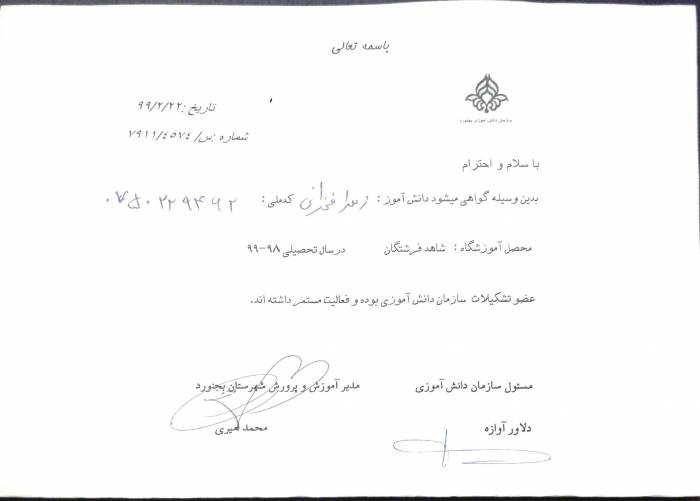 باسمه تعالی
سازمان دانش آموزی بجنورد
تاریخ: ۹۹/۲/۲۲
شماره :س/ ۷۹۱۱/۴۵۷۴
با سلام و احترام
بدین وسیله گواهی میشود دانش آموز : زهرا کدملی :
محصل آموزشگاه : شاهد فرشتگان درسال تحصیلی ۹۸-۹۹
عضو تشکیلات سازمان دانش آموزی بوده و فعالیت مستمر داشته اند.
مسئول سازمان دانش آموزی مدیر آموزش و پرورش شهرستان بجنورد
دلاور آوازه محمد امیری